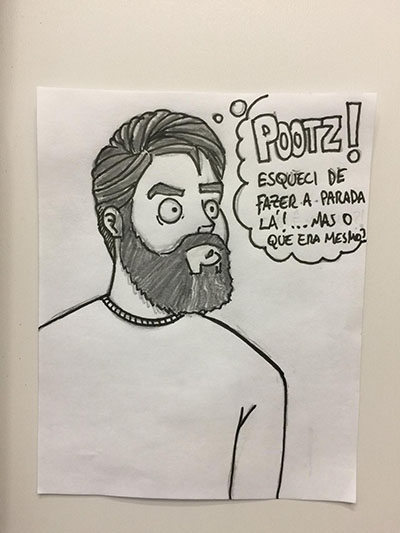 POOTZ!
ESQUECI DE
FAZER A PARADA
LÁ!...MAS O
QUE ERA MESMO?